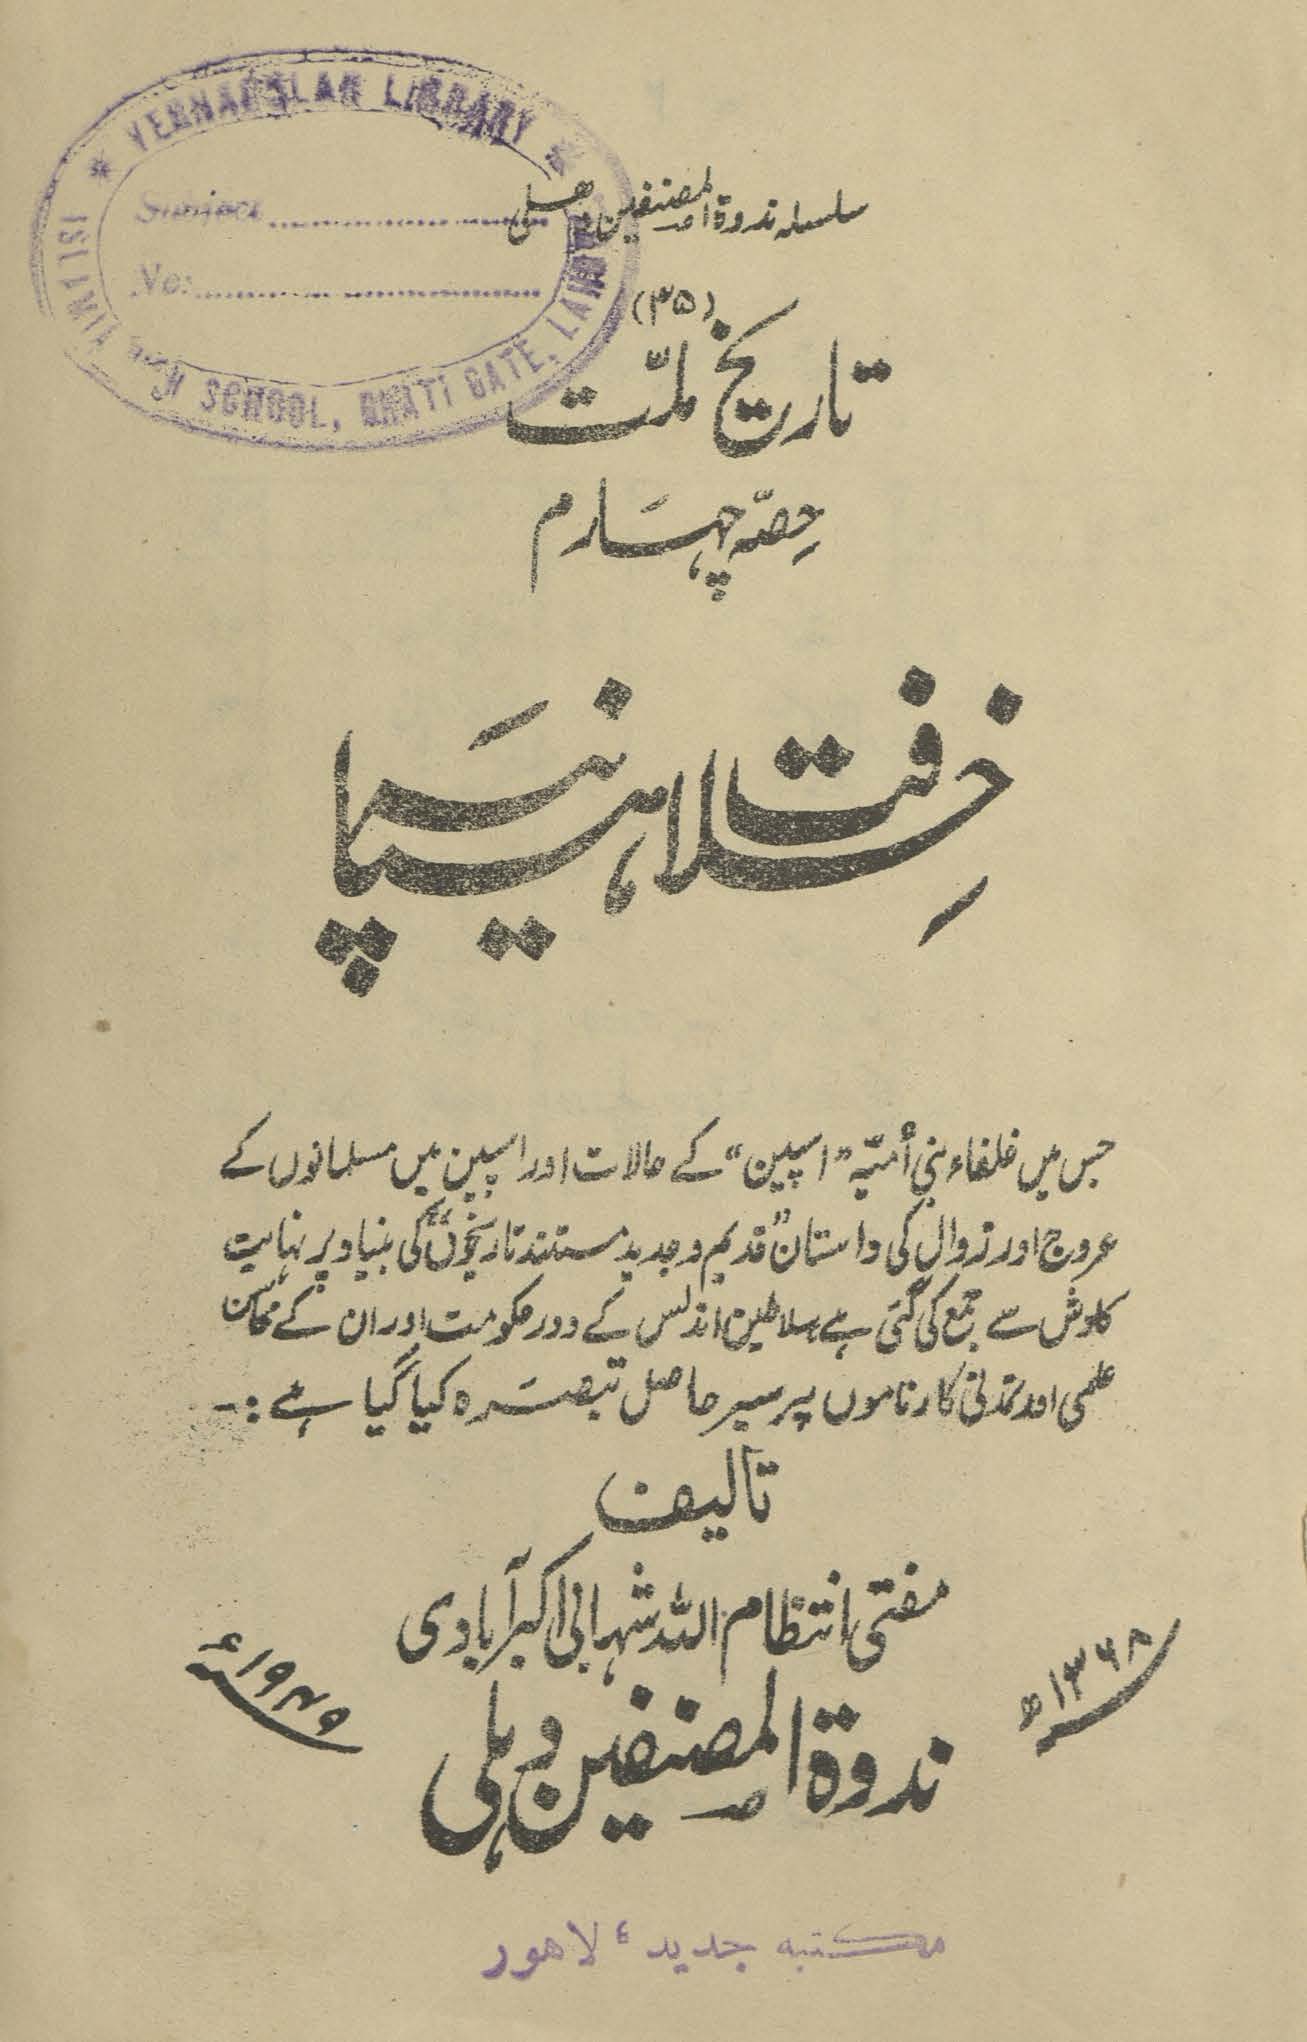 VERNACULAR LIBRARY
Subject
No:
ISLAMIA HIGH SCHOOL, BHATI GATE, LAHORE
سلسلہ ندوۃ المصنفین دہلی
(۳۵)
تاریخ ملّت
حِصّہ چہارم
خِلافت ہسپانیہ
جس میں خلفاء بنی اُمیّہ "اسپین" کے حالات اور اسپین میں مسلمانوں کے
عروج اور زوال کی داستان "قدیم و جدید مستند تاریخوں" کی بنیاد پر نہایت
کاوش سے جمع کی گئی ہے، سلاطین اندلس کے دور حکومت اور ان کے محاسن
علمی اور تمدنی کارناموں پر سیر حاصل تبصرہ کیا گیا ہے :-
تالیف
مفتی انتظام اللہ شہابی اکبرآبادی
۱۳۶۸ھ
۱۹۴۹ء
ندوۃ المصنفین دہلی
مکتبہ جدید، لاہور